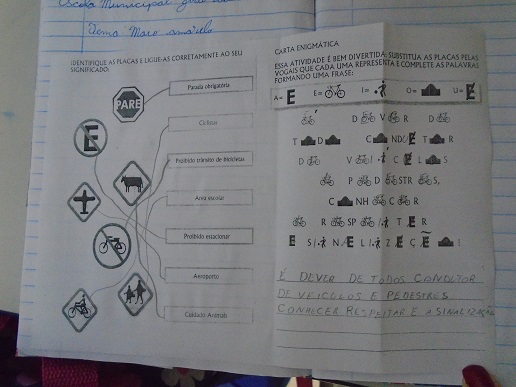 Escola Municipal
Tema Maio amarelo
IDENTIFIQUE AS PLACAS E LIGUE-AS CORRETAMENTE AO SEU
SIGNIFICADO:
PARE
E
Parada obrigatória
Ciclistas
Proibido trânsito de bicicletas
Área escolar
Proibido estacionar
Aeroporto
Cuidado Animais
CARTA ENIGMÁTICA
ESSA ATIVIDADE É BEM DIVERTIDA. SUBSTITUA AS PLACAS PELAS
VOGAIS QUE CADA UMA REPRESENTA E COMPLETE AS PALAVRAS,
FORMANDO UMA FRASE:
A= E E= I= O= U= E
D V R D
T D C ND T R
D V C L S
P D STR S,
C NH C R
R SP T R
S N L Z Ç
É DEVER DE TODOS CONDUTOR
DE VEÍCULOS E PEDESTRES
CONHECER RESPEITAR E A SINALIZAÇÃO